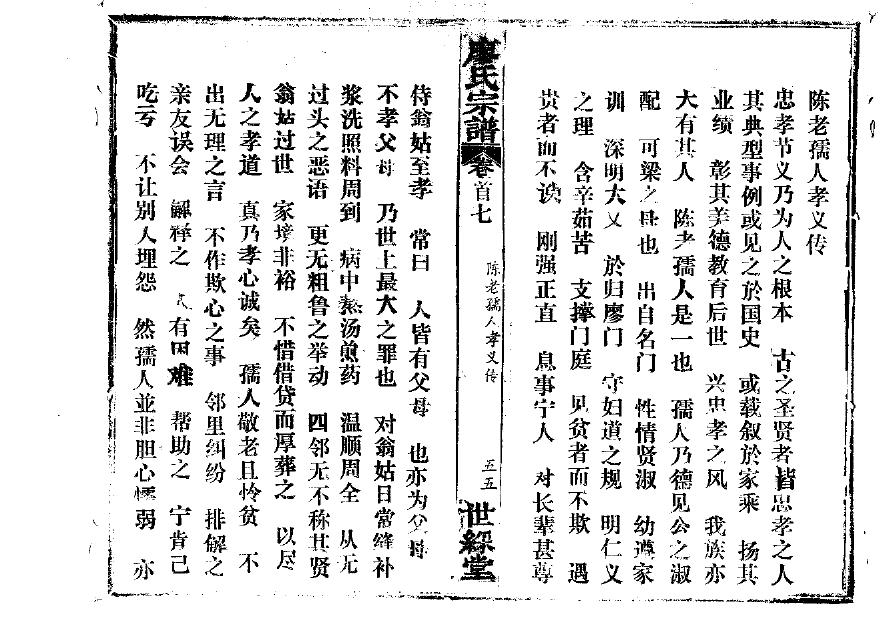 陈老孺人孝义传
忠孝节义乃为人之根本 古之圣贤者皆忠孝之人
其典型事例或见之於国史 或载叙於家乘 扬其
业绩 彰其美德教育后世 兴忠孝之风 我族亦
大有其人 陈老孺人是一也 孺人乃德见公之淑
配 可梁之母也 出自名门 性情贤淑 幼遵家
训 深明大义 於归廖门 守妇道之规 明仁义
之理 含辛茹苦 支撑门庭 见贫者而不欺 遇
贵者而不谀 刚强正直 息事宁人 对长辈甚尊
廖氏宗譜
卷首七
陈老孺人孝义传
五五
世綵堂
侍翁姑至孝 常曰 人皆有父母 也亦为父母
不孝父母 乃世上最大之罪也 对翁姑日常缝补
浆洗照料周到 病中熬汤煎药 温顺周全 从无
过头之恶语 更无粗鲁之举动 四邻无不称其贤
翁姑过世 家境非裕 不惜借贷而厚葬之 以尽
人之孝道 真乃孝心诚矣 孺人敬老且怜贫 不
出无理之言 不作欺心之事 邻里纠纷 排解之
亲友误会 解释之 人有困难 帮助之 宁肯己
吃亏 不让别人埋怨 然孺人並非胆心懦弱 亦